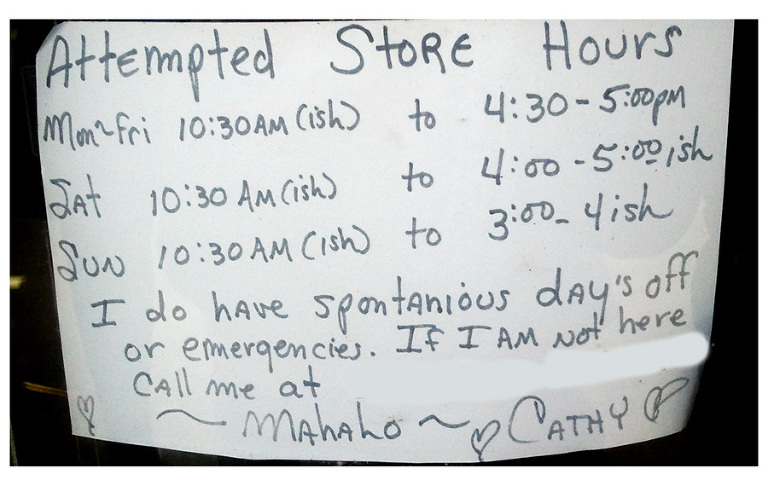 Attempted Store Hours
Mon~Fri 10:30AM (ish) to 4:30-5:00pm
Sat 10:30 AM (ish) to 4:00-5:00ish
Sun 10:30 AM (ish) to 3:00-4ish
I do have spontanious day's off
or emergencies. If I AM not here
CAll me at
~ MAhAlo ~ CATHY